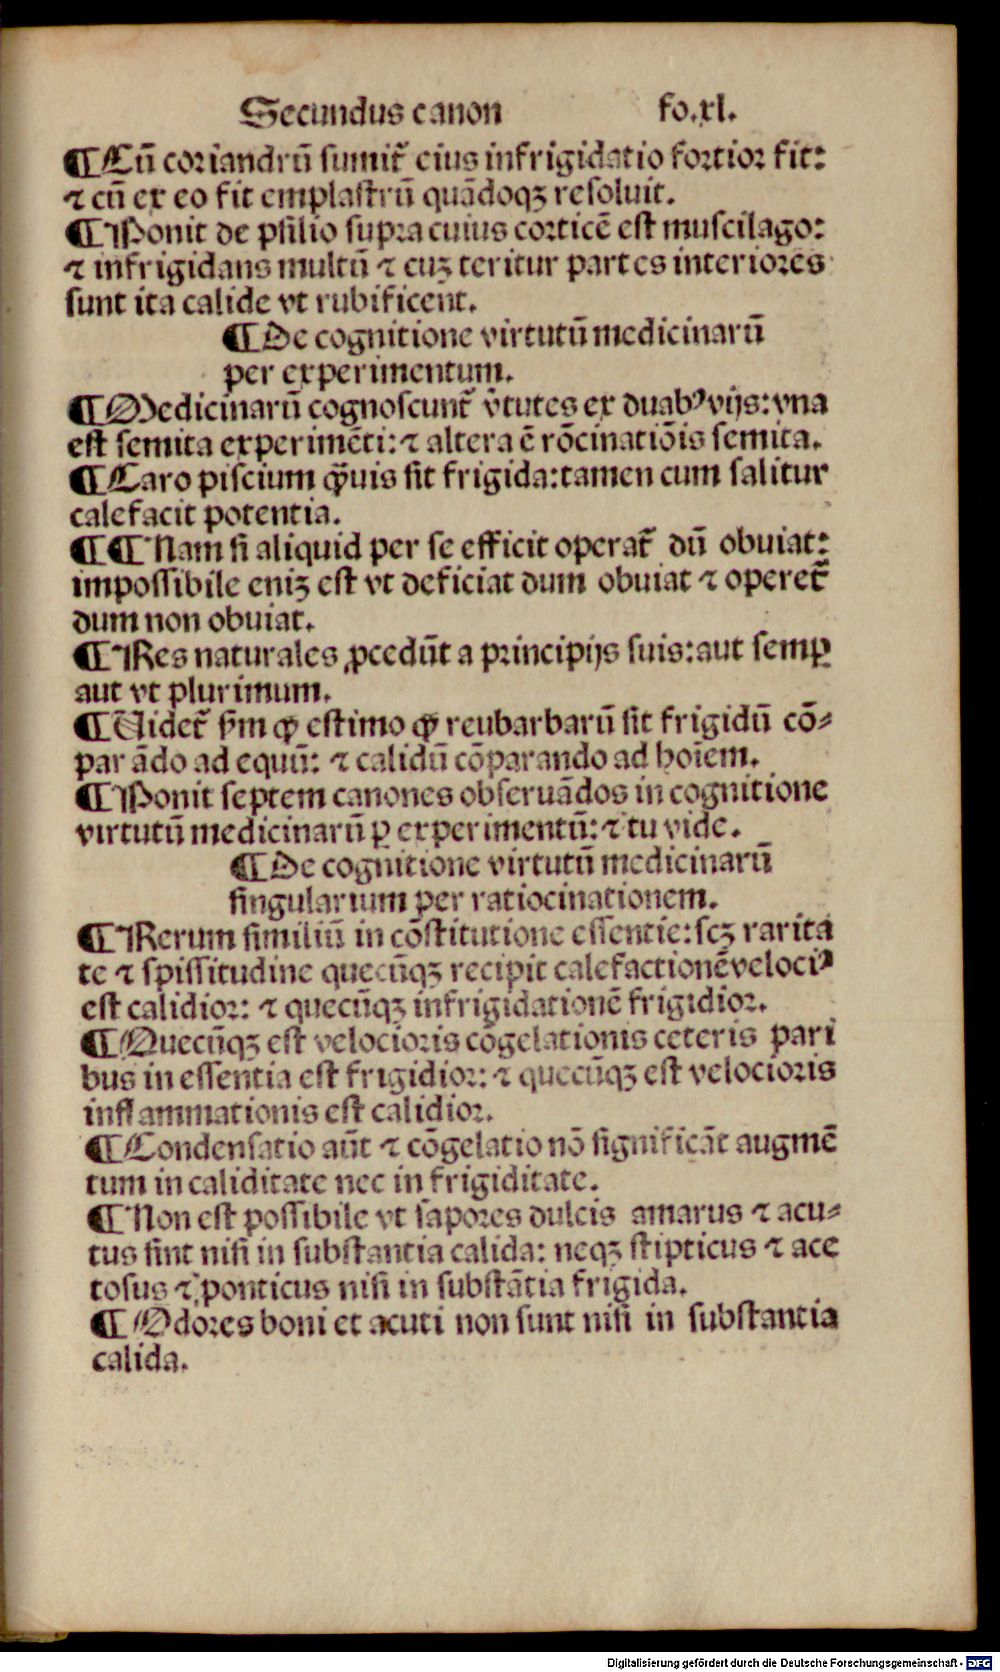 Secundus canon fo.xl.
¶Cū coriandrū sumit̄ eius infrigidatio fortior fit:
⁊ cū ex eo fit emplastrū quādoqꝫ resoluit.
¶Ponit de psilio supra cuius corticē est muscilago:
⁊ infrigidans multū ⁊ cuꝫ teritur partes interiores
sunt ita calide vt rubificent.
¶De cognitione virtutū medicinarū
per experimentum.
¶Medicinarū cognoscunt̄ v̄tutes ex duabꝰ vijs: vna
est semita experimēti: ⁊ altera ē rōcinatiōis semita.
¶Caro piscium qͣꝫuis sit frigida: tamen cum salitur
calefacit potentia.
¶¶Nam si aliquid per se efficit operat̄ dū obuiat:
impossibile eniꝫ est vt deficiat dum obuiat ⁊ operet̄
dum non obuiat.
¶Res naturales ꝓcedūt a principijs suis: aut semꝑ
aut vt plurimum.
¶Uidet̄ fm ꝙ estimo ꝙ reubarbarū sit frigidū cō⸗
parādo ad equū: ⁊ calidū cōparando ad hoīem.
¶Ponit septem canones obseruādos in cognitione
virtutū medicinarū ꝑ experimentū: ⁊ tu vide.
¶De cognitione virtutū medicinarū
singularium per ratiocinationem.
¶Rerum similiū in cōstitutione essentie: scꝫ rarita
te ⁊ spissitudine quecūqꝫ recipit calefactionē velociꝰ
est calidior: ⁊ quecūqꝫ infrigidationē frigidior.
¶Quecūqꝫ est velocioris cōgelationis ceteris pari
bus in essentia est frigidior: ⁊ quecūqꝫ est velocioris
inflammationis est calidior.
¶Condensatio aūt ⁊ cōgelatio nō significāt augmē
tum in caliditate nec in frigiditate.
¶Non est possibile vt sapores dulcis amarus ⁊ acu⸗
tus sint nisi in substantia calida: neqꝫ stipticus ⁊ ace
tosus ⁊ ponticus nisi in substātia frigida.
¶Odores boni et acuti non sunt nisi in substantia
calida.
Digitalisierung gefördert durch die Deutsche Forschungsgemeinschaft - DFG